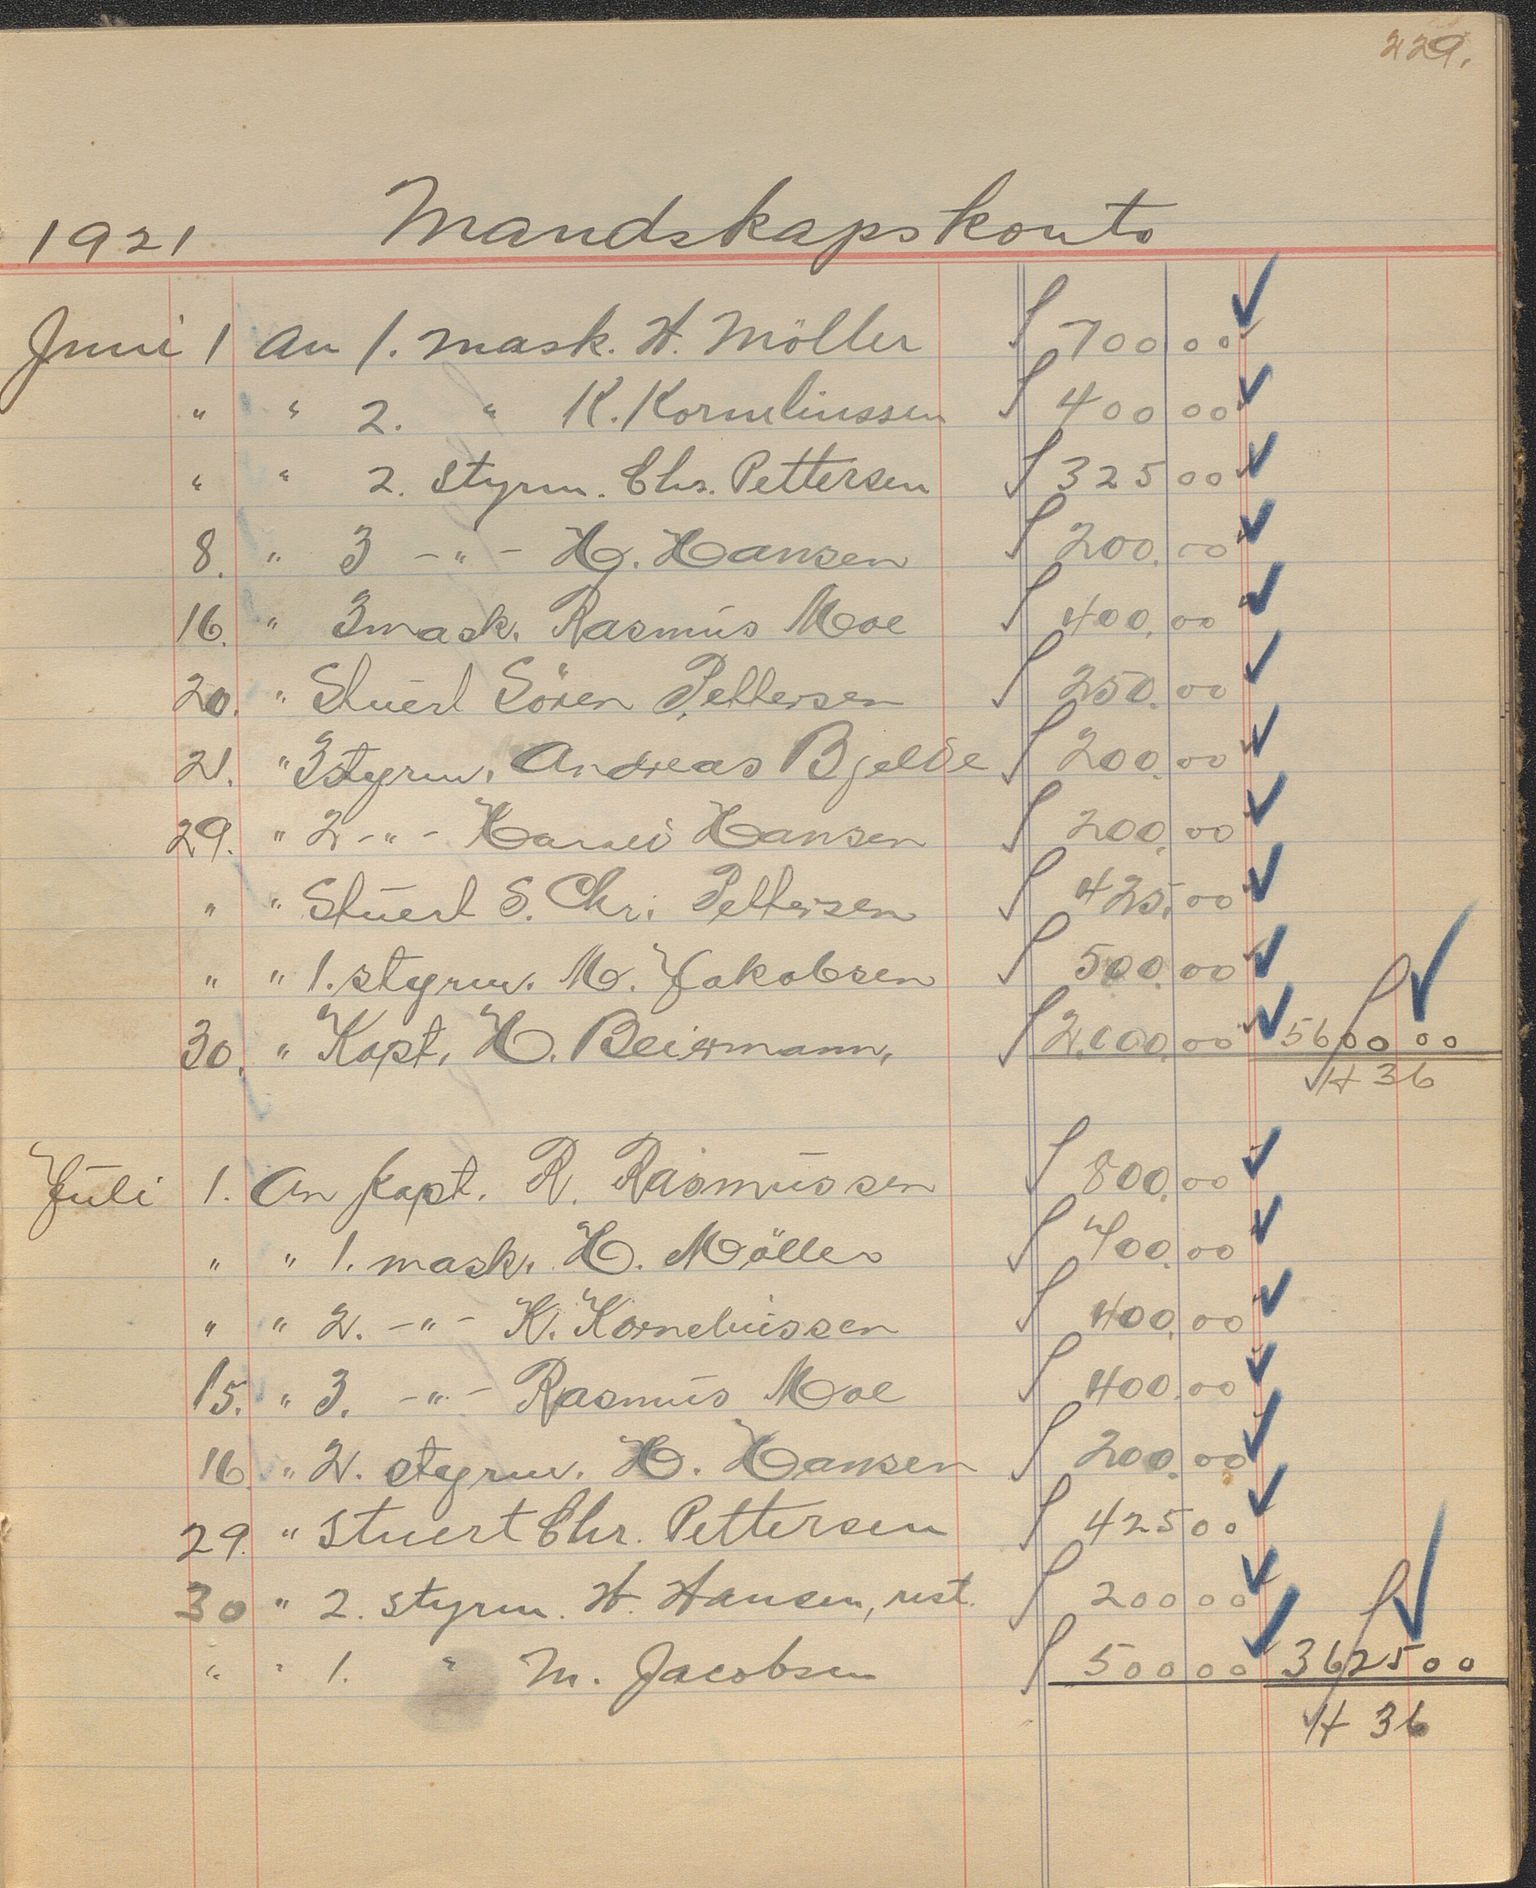 229.
1921 Mandskapskonto
Juni 1 An 1. mask. H. Möller 700 00
" " 2. " K. Kornelinssen 400 00
" " 2. styrm. Chr. Pettersen 325 00
8. " 3 -"- H. Hansen 200. 00
16. " 3 mask. Rasmus Moe 400. 00
20. " Stuert Sören Pettersen 250. 00
21. " 3 styrm. Andreas Bjelde 200. 00
29. " 2 -"- Hansen 200. 00
" " Stuert S. Chr. Pettersen 425. 00
" " 1. styrm. M. Jakobsen 500. 00
30. " Kapt. H. Beiermann, 2.000. 00 5600 00
H 36
Juli 1. An kapt. R. Rasmussen 800. 00
" " 1. mask. H. Möller 700. 00
" " 2. -"- K. Korneliussen 400. 00
15. " 3. -"- Rasmus Moe 400. 00
16 " 2. styrm. H. Hansen 200. 00
29. " Stuert Chr. Pettersen 425 00
30 " 2. styrm. H. Hansen, rest. 200 00
" " 1. " M. Jacobsen 500 00 3625 00
H 36